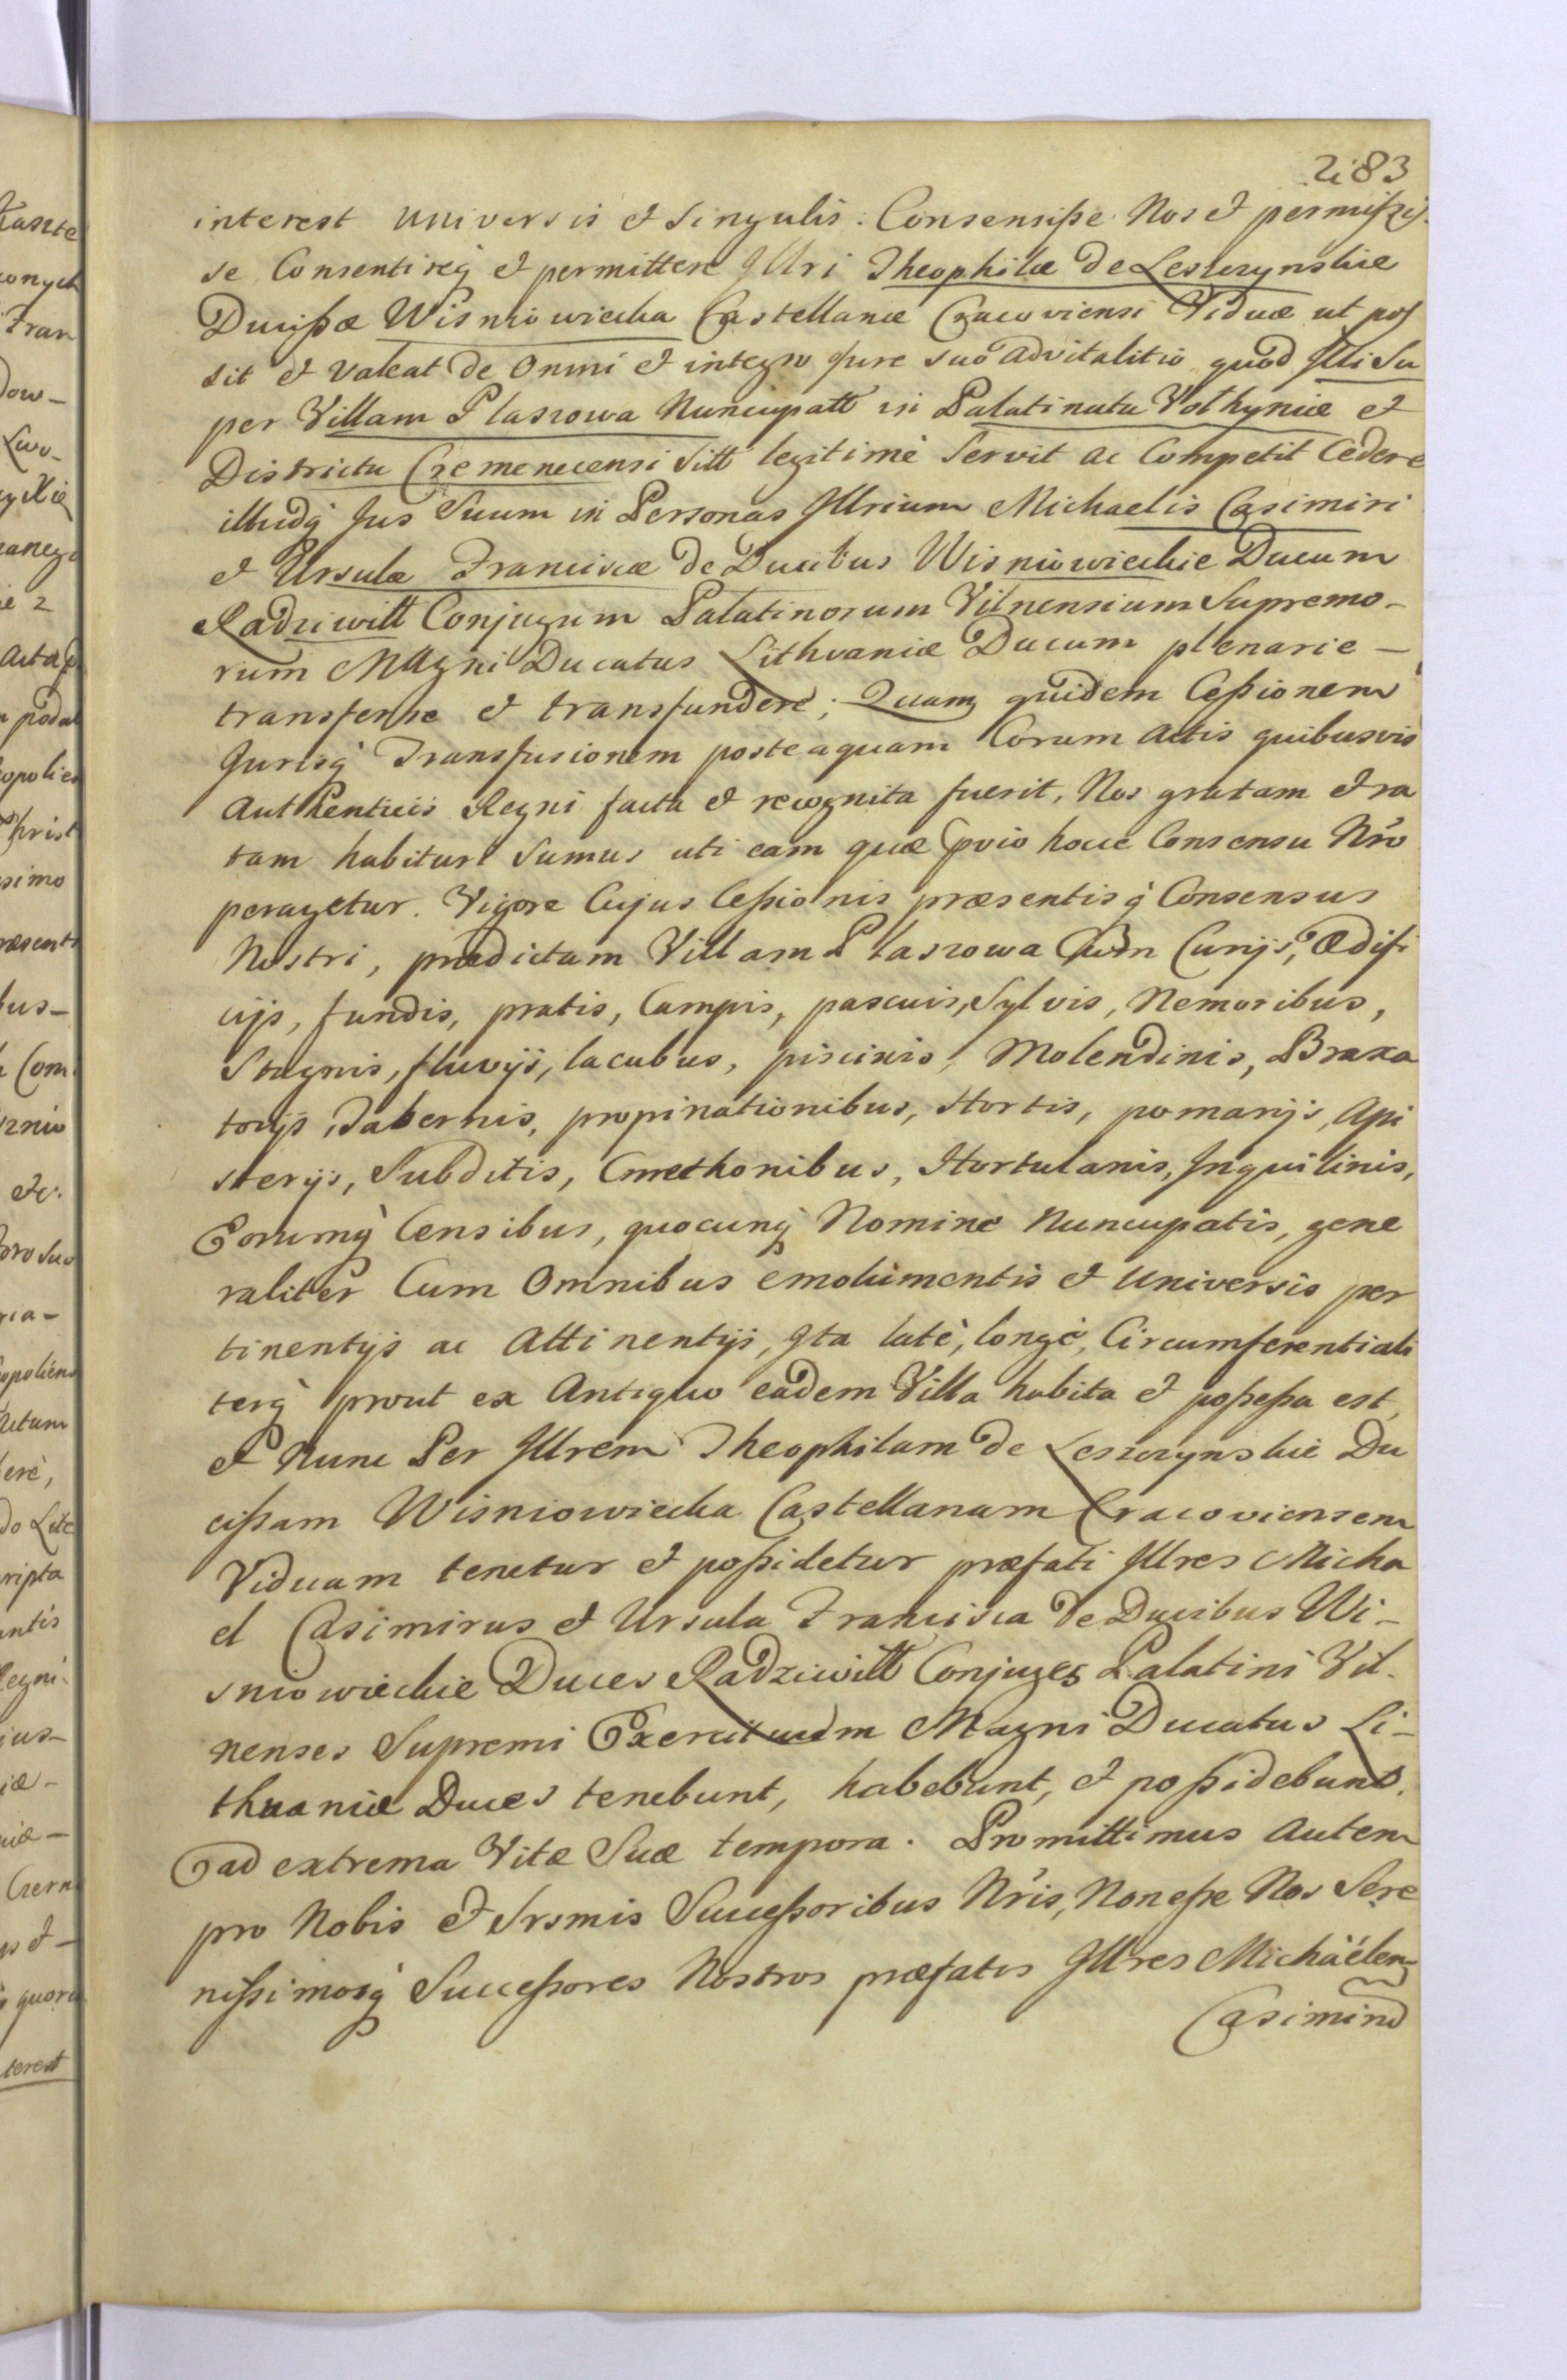 2i83
interest universis et Singulis: Consensiße Nos et permißis-
se Consentireq; et permittere Jllri Theophilæ de Leszczynskie
Ducißæ Wisniowiecka Castellanæ Cracoviensi Viduæ ut pos
sit et valeat de Omni et integro Jure suo advitalitio quod Jlli Su
per Villam Plaszowa Nuncupatt in Palatinatu Volhyniæ et
Districtu Cremenecensi Sitt legitimè Servit ac Competit Cedere
illudq; Jus Suum in Personas Jllrium Michaelis Casimiri
et Ursulæ Franciscæ de Ducibus Wisniowieckie Ducum
Radziwill Conjugum Palatinorum Vilnensium Supremo-
rum Magni Ducatus Lithvaniæ Ducum plenarie -
transferre et transfundere; Quam quidem Ceßionem
Jurisq; Transfusionem posteaquam Coram Actis quibusvis
Authenticis Regni facta et recognita fuerit, Nos gratam et ra
tam habituri Sumus uti eam quæ prvio hocce Consensu Nro
peragetur. Vigore Cujus Ceßionis præsentisq; Consensus
Nostri, prædictam Villam Plaszowa Cum Curijs, Ædifi
cijs, fundis, pratis, Campis, pascuis, Sylvis, Nemoribus,
Stagnis, fluvijs, lacubus, piscinis, Molendinis, Braxa
torijs, Tabernis, propinationibus, Hortis, pomarijs, Api
sterijs, Subditis, Cmethonibus, Hortulanis, Jnquilinis,
Eorumq; Censibus, quocunq; Nomine Nuncupatis, gene
raliter Cum Omnibus emolumentis et Universis per
tinentijs ac Attinentijs, Jta latè, longè, Circumferentiali
terq; prout ex Antiquo eadem Villa habita et poßeßa est,
et Nunc Per Jllrem Theophilam de Leszczynskie Du
cißam Wisniowiecka Castellanam Cracoviensem
Viduam tenetur et poßidetur præfati Jllres Micha
el Casimirus et Ursula Francisca de Ducibus Wi-
sniowieckie Duces Radziwill Conjuges Palatini Vil-
nenses Supremi Exercituum Magni Ducatus Li-
thuaniæ Duces tenebunt, habebunt, et poßidebunt.
ad extrema Vitæ Suæ tempora. Promittimus Autem
pro Nobis et Srsmis Succeßoribus Nris, Non eße Nos Sere
nißimosq; Succeßores Nostros præfatos Jllres Michaëlem
Casimirum